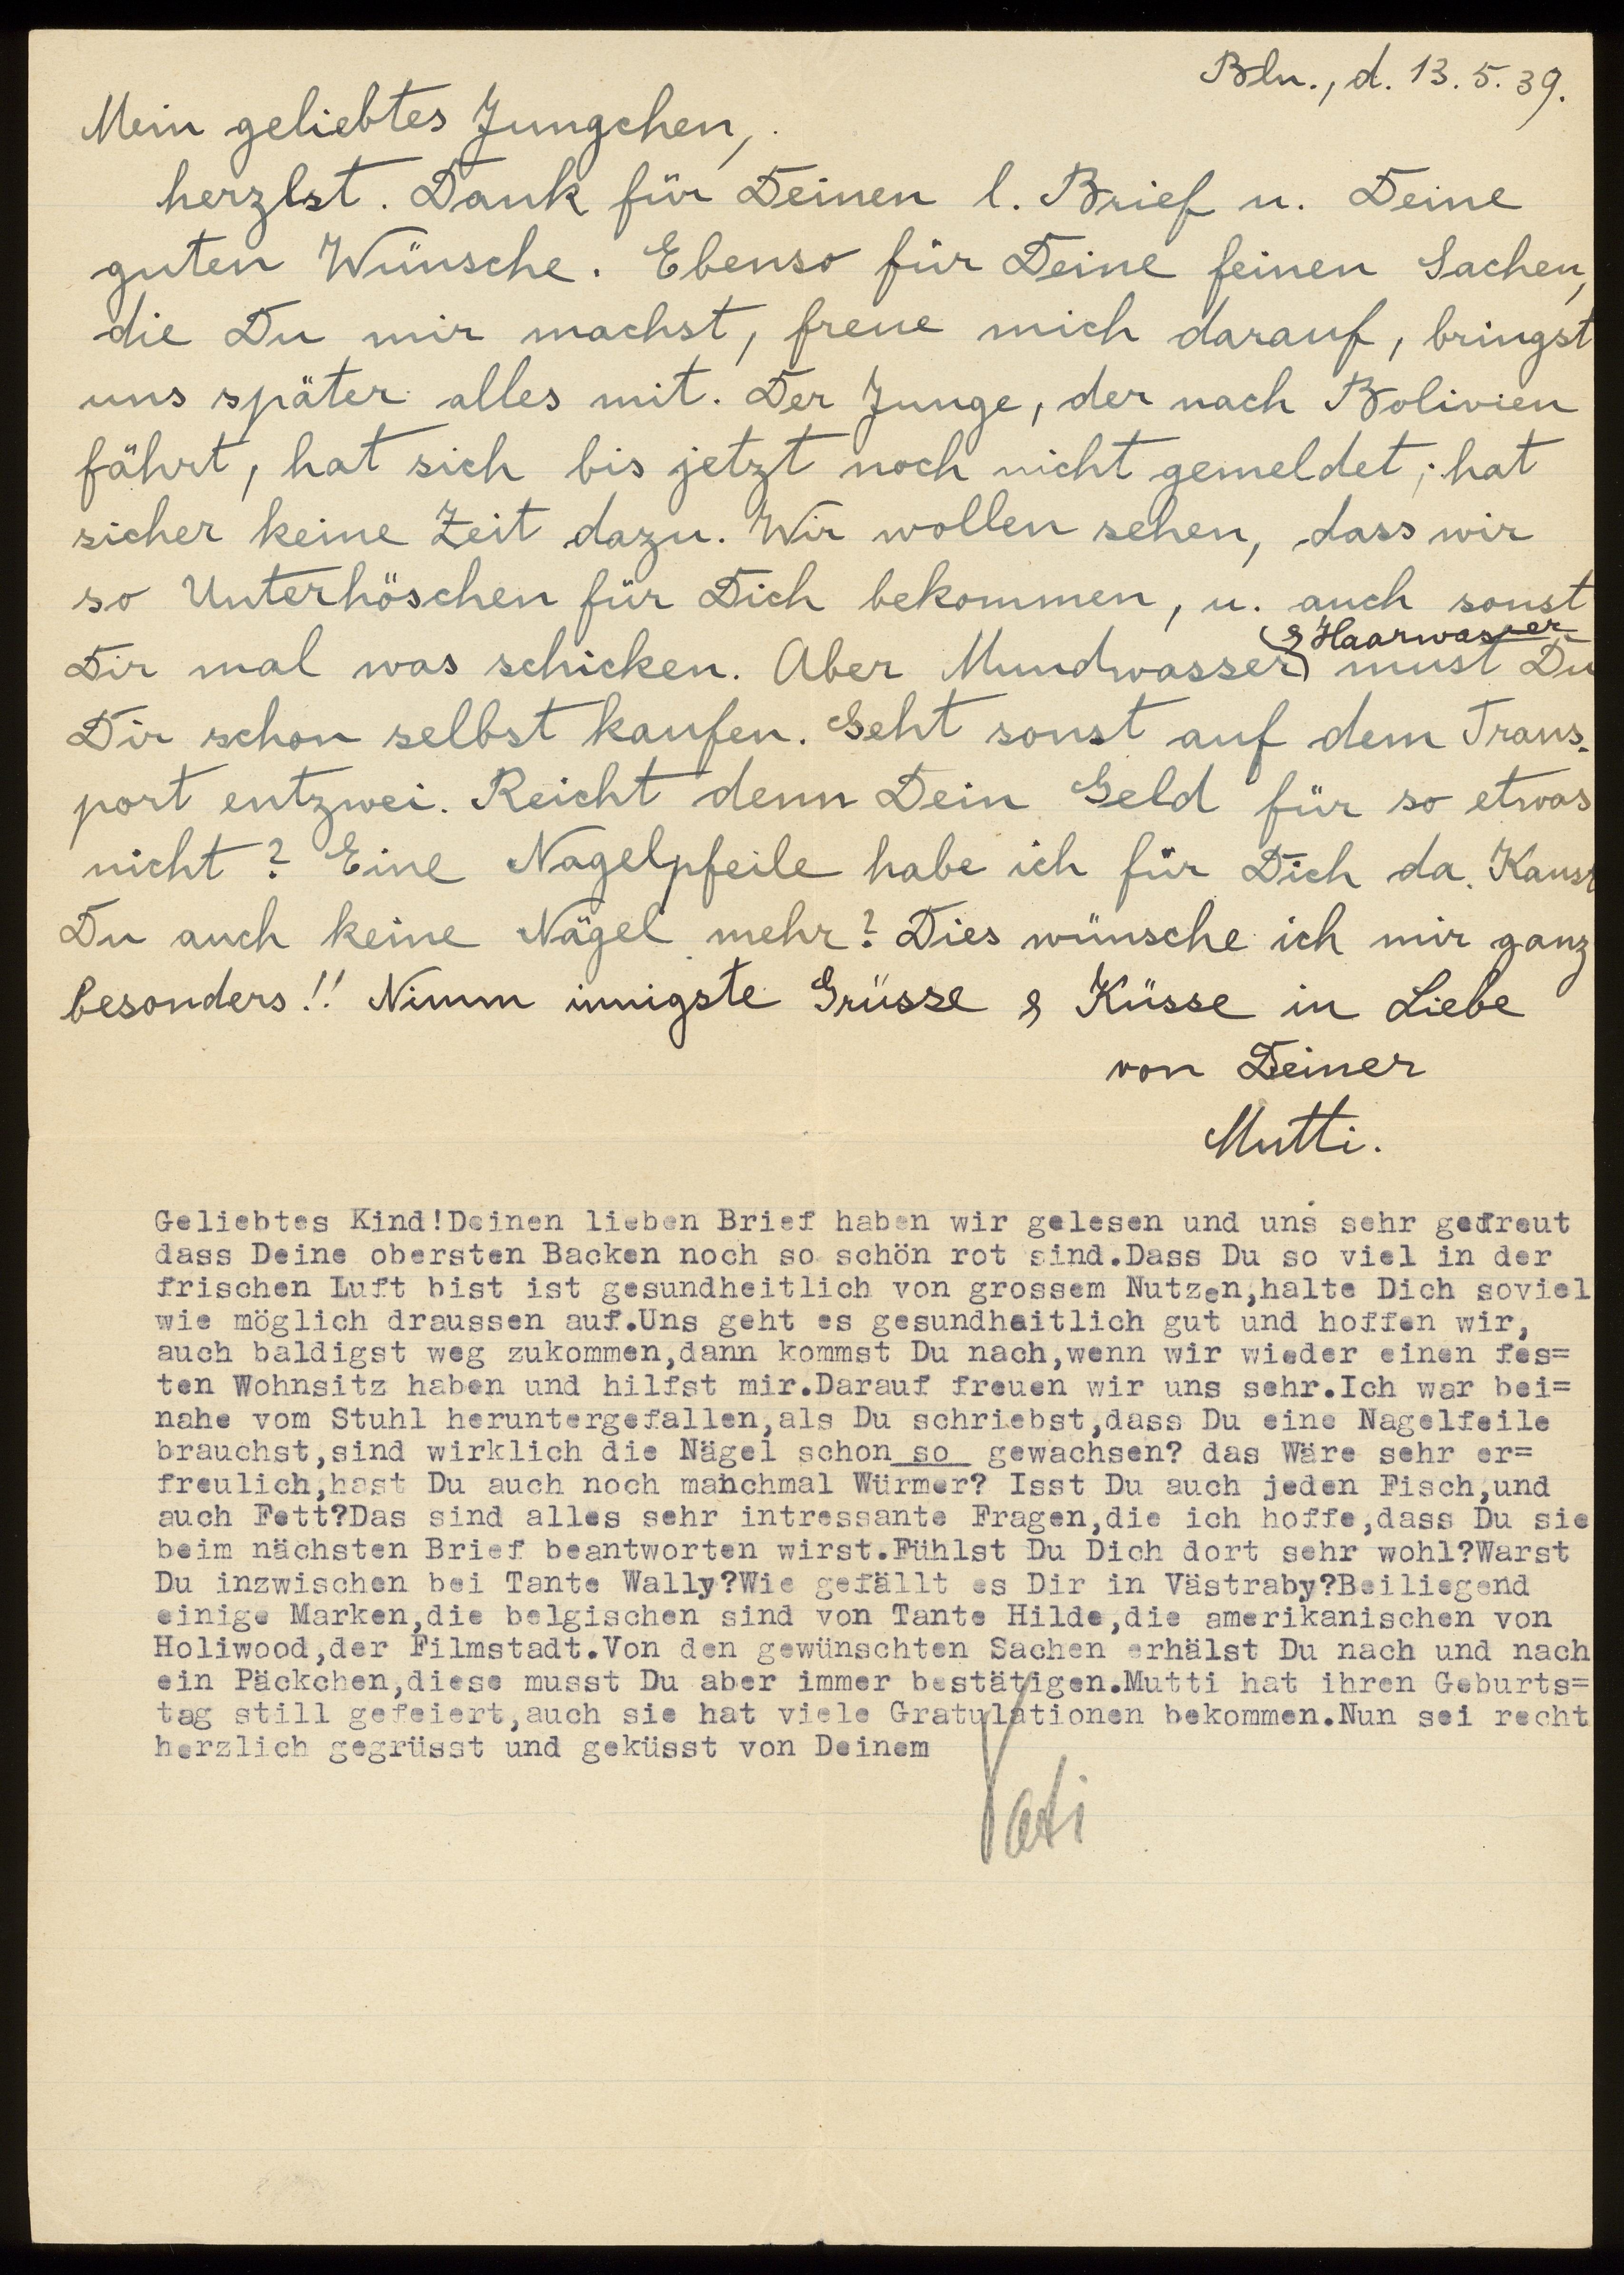 Bln., d. 13.5.39.
Mein geliebtes Jungchen,
herzlst. Dank für Deinen l. Brief u. Deine
guten Wünsche. Ebenso für Deine feinen Sachen,
die Du mir machst, freue mich darauf, bringst
uns später alles mit. Der Junge, der nach Bolivien
fährt, hat sich bis jetzt noch nicht gemeldet; hat
sicher keine Zeit dazu. Wir wollen sehen, dass wir
so Unterhöschen für Dich bekommen, u. auch sonst
& Haarwasser
Dir mal was schicken. Aber Mundwasser must Du
Dir schon selbst kaufen. Geht sonst auf dem Trans-
port entzwei. Reicht denn Dein Geld für so etwas
nicht? Eine Nagelpfeile habe ich für Dich da. Kaust
Du auch keine Nägel mehr? Dies wünsche ich mir ganz
besonders!! Nimm innigste Grüsse & Küsse in Liebe
von Deiner
Mutti.
Geliebtes Kind!Deinen lieben Brief haben wir gelesen und uns sehr gefreut
dass Deine obersten Backen noch so schön rot sind.Dass Du so viel in der
frischen Luft bist ist gesundheitlich von grossem Nutzen,halte Dich soviel
wie möglich draussen auf.Uns geht es gesundhaitlich gut und hoffen wir,
auch baldigst weg zukommen,dann kommst Du nach,wenn wir wieder einen fes=
ten Wohnsitz haben und hilfst mir.Darauf freuen wir uns sehr.Ich war bei=
nahe vom Stuhl heruntergefallen,als Du schriebst,dass Du eine Nagelfeile
brauchst,sind wirklich die Nägel schon so gewachsen? das Wäre sehr er=
freulich,hast Du auch noch manchmal Würmer? Isst Du auch jeden Fisch,und
auch Fett?Das sind alles sehr intressante Fragen,die ich hoffe,dass Du sie
beim nächsten Brief beantworten wirst.Fühlst Du Dich dort sehr wohl?Warst
Du inzwischen bei Tante Wally?Wie gefällt es Dir in Västraby?Beiliegend
einige Marken,die belgischen sind von Tante Hilde,die amerikanischen von
Holiwood,der Filmstadt.Von den gewünschten Sachen erhälst Du nach und nach
ein Päckchen,diese musst Du aber immer bestätigen.Mutti hat ihren Geburts=
tag still gefeiert,auch sie hat viele Gratulationen bekommen.Nun sei recht
herzlich gegrüsst und geküsst von Deinem
Vati